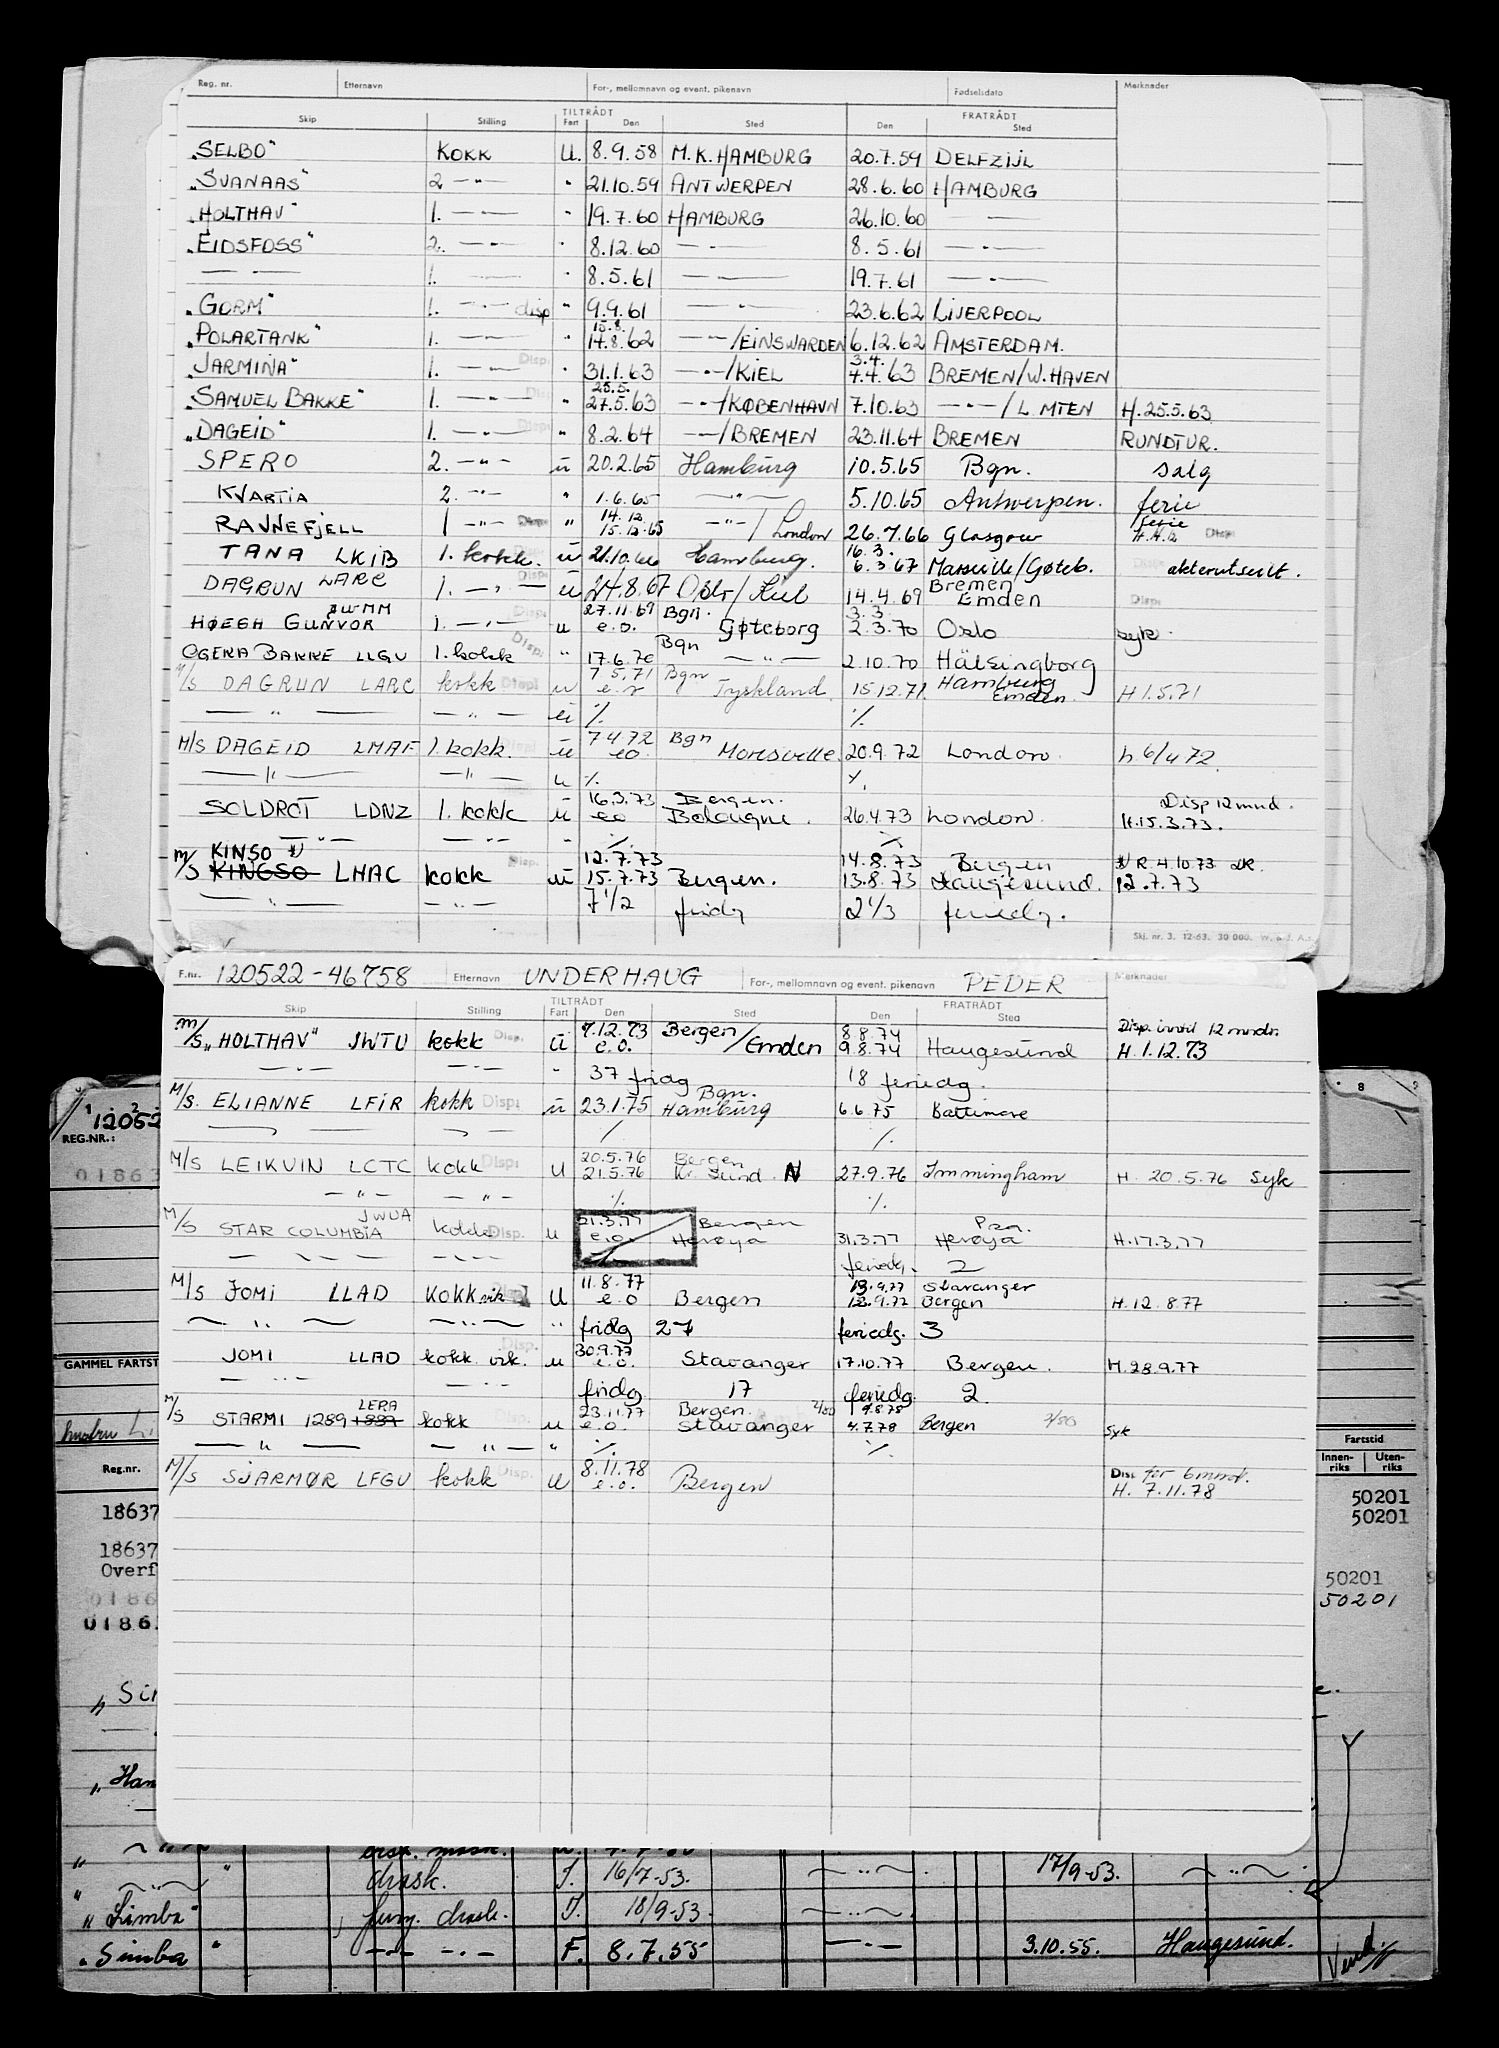 Reg. nr. Etternavn For-, mellomnavn og event. pikenavn Fødselsdato Merknader
TILTRÅDT FRATRÅDT
Skip Stilling Fart Den Sted Den Sted
„SELBO" KOKK U. 8.9.58 M.K. HAMBURG 20.7.59 DELFZIJL
„SVANAAS" 2 —"— " 21.10.59 ANTWERPEN 28.6.60 HAMBURG
„HOLTHAV" 1. —"— " 19.7.60 HAMBURG 26.10.60 ——
„EIDSFOSS" 2. —"— " 8.12.60 —"— 8.5.61 —"—
—"— 1. —"— " 8.5.61 —"— 19.7.61 —"—
„GORM" 1. —"— disp " 9.9.61 —"— 23.6.62 LIVERPOOL
15.8.
„POLARTANK" 1. —"— " 14.8.62 —"—/EINSWARDEN 6.12.62 AMSTERDAM.
3.4.
„JARMINA" 1. —"— Disp. " 31.1.63 —"—/KIEL 4.4.63 BREMEN/W.HAVEN
25.5.
„SAMUEL BAKKE" 1. —"— Disp. " 27.5.63 —"—/KØBENHAVN 7.10.63 —"—/L. MTEN H.25.5.63
„DAGEID" 1. —"— Disp. " 8.2.64 —"—/BREMEN 23.11.64 BREMEN RUNDTUR.
SPERO 2. —"— u 20.2.65 Hamburg 10.5.65 Bgn. salg
KVARTIA 2. —"— " 1.6.65 —"— 5.10.65 Antwerpen. ferie
14.12. ferie
RAVNEFJELL 1 —"— Disp. " 15.12.65 —"—/London 26.7.66 Glasgow Disp.
16.3.
TANA LKIB 1. kokk. u 21.10.66 Hamburg. 6.3.67 Marseille/Gøteb. akterutseilt.
Bremen
DAGRUN LARC 1. —"— Disp. u 24.8.67 Oslo/Kiel 14.4.69 Emden Disp.
27.11.69 Bgn. 3.3.
HØEGH GUNVOR 1. —"— u e.o. Gøteborg 2.3.70 Oslo syk
Bgn
OGEKA BAKKE LLGU 1. kokk Disp. " 17.6.70 —"— 2.10.70 Hälsingborg
7.5.71 Bgn Hamburg
M/S DAGRUN LARC kokk Disp. u e.o Tyskland 15.12.71. Emden. H 1.5.71
—"— —"— u ٪ ٪
7.4.72 Bgn
M/S DAGEID LMAF 1. kokk. u eo. 20.9.72 London. h. 6/4 72.
—"— —"— u ٪ ٪
16.3.73 Bergen. Disp 12 mnd.
SOLDROT LDNZ 1. kokk u eo Bolougne. 26.4.73 London. H.15.3.73.
—"— —"— " ٪ ٪
KINSO x) 12.7.73 14.8.73 Bergen x) R.4.10.73
M/S KINGSO LHAC kokk Disp. u 15.7.73 Bergen. 13.8.73 Haugesund. 12.7.73
—"— —"— 7 1/2 fridg 2 1/3 feriedg.
Skj. nr. 3. 12-63. 30 000. W. & J. A.s
F.nr. 120522-46758 Etternavn UNDERHAUG For-, mellomnavn og event. pikenavn PEDER Merknader
TILTRÅDT FRATRÅDT
Skip Stilling Fart Den Sted Den Sted
7.12.73 Bergen 8.8.74 Disp. inntil 12 mndr.
M/S „HOLTHAV" JWTU kokk Disp. u e.o. /Emden 9.8.74 Haugesund H.1.12.73
—"— —"— " 37 fridg 18 feriedg.
Bgn.
M/S. ELIANNE LFIR kokk Disp. u 23.1.75 Hamburg 6.6.75 Baltimore
—"— —"— ٪ ٪
20.5.76 Bergen
M/S LEIKVIN LCTC kokk Disp. u 21.5.76 Kr. Sund. N 27.9.76 Immingham H. 20.5.76 Syk
—"— —"— ٪ ٪
JWUA 21.3.77 Bergen
M/S STAR COLUMBIA kokk Disp. u e.o. Herøya 31.3.77 Herøya H.17.3.77
—"— —"— feriedg. 2
11.8.77 13.9.77 Stavanger
M/S JOMI LLAD KOKK vik u e.o Bergen Bergen H.12.8.77
—"— —"— " fridg 27 feriedg. 3
30.9.77
JOMI LLAD kokk vik. Disp. u e.o. Stavanger 17.10.77 Bergen. H.28.9.77
—"— —"— fridg. 17 feriedg. 2.
LERA 23.11.77 Bergen. 4.8.78
M/S STARMI 1289 kokk Disp. u e.o. Stavanger 4.7.78 Bergen 7/80 syk
—"— —"— " ٪ ٪
8.11.78 Disp. for 6 mnd.
M/S SJARMØR LFGU kokk Disp. u e.o. Bergen H. 7.11.78
12052
REG.NR.:
01863
GAMMEL FARTST
Reg.nr.
Fartstid
Innen-riks Uten-riks
18637 50201
50201
18637
Overf 50201
0186 50201
0186
„Sim
„Ham
drsk. I. 16/7-53. —"— 17/9-53. —"—
„Simba" jung. drsk. I. 18/9-53. —"—
„Simba" —"— F. 8.7.55 —"— 3.10.55. Haugesund. Vend!